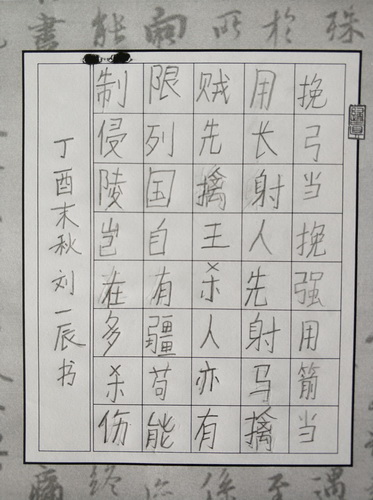 挽弓当挽强用箭当
用长射人先射马擒
贼先擒王杀人亦有
限列国自有疆苟能
制侵陵岂在多杀伤
丁酉末秋刘一辰书